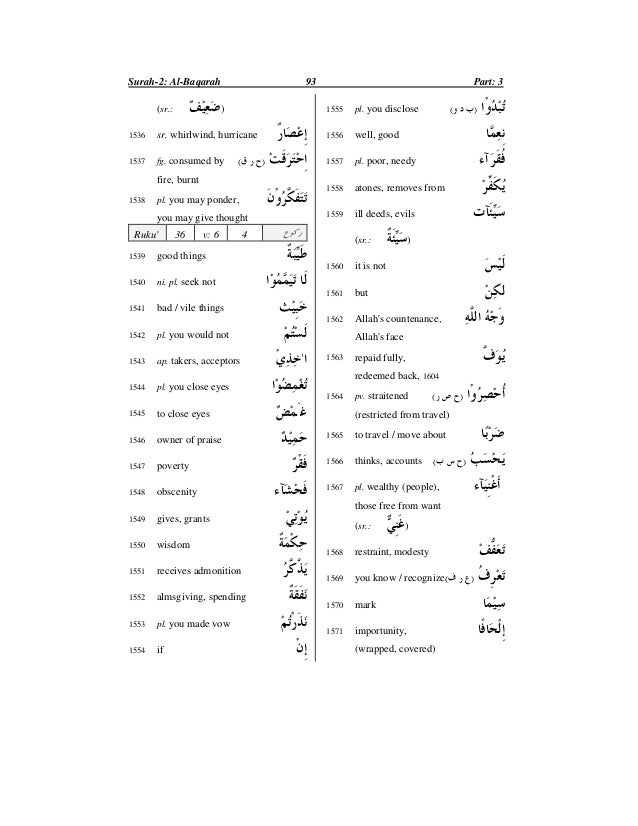 Surah-2: Al-Baqarah 93 Part: 3
(sr.: ضَعِيْفٌ)
1536 sr. whirlwind, hurricane إِعْصَارٌ
1537 fg. consumed by (ح ر ق) اِحْتَرَقَتْ
fire, burnt
1538 pl. you may ponder, تَتَفَكَّرُوْنَ
you may give thought
Ruku' 36 v: 6 4 ركوع
1539 good things طَيِّبَةٌ
1540 ni. pl. seek not لَا تَيَمَّمُوْا
1541 bad / vile things خَبِيْثٌ
1542 pl. you would not لَسْتُمْ
1543 ap. takers, acceptors اٰخِذِيْ
1544 pl. you close eyes تُغْمِضُوْا
1545 to close eyes غَمْضٌ
1546 owner of praise حَمِيْدٌ
1547 poverty فَقْرٌ
1548 obscenity فَحْشَآء
1549 gives, grants يُوْتِيْ
1550 wisdom حِكْمَةٌ
1551 receives admonition يَذَّكَّرُ
1552 almsgiving, spending نَفَقَةٌ
1553 pl. you made vow نَذَرْتُمْ
1554 if إِنْ
1555 pl. you disclose (ب د و) تُبْدُوْا
1556 well, good نِعِمَّا
1557 pl. poor, needy فُقَرَآء
1558 atones, removes from يُكَفِّرُ
1559 ill deeds, evils سَيِّئَآت
(sr.: سَيِّئَةٌ)
1560 it is not لَيْسَ
1561 but لكِنْ
1562 Allah's countenance, وَجْهُ اللَّهِ
Allah's face
1563 repaid fully, يُوَفَّ
redeemed back, 1604
1564 pv. straitened (ح ص ر) أُحْصِرُوْا
(restricted from travel)
1565 to travel / move about ضَرْبًا
1566 thinks, accounts (ح س ب) يَحْسَبُ
1567 pl. wealthy (people), أَغْنِيَآء
those free from want
(sr.: غَنِيٌّ)
1568 restraint, modesty تَعَفُّفْ
1569 you know / recognize(ع ر ف) تَعْرِفُ
1570 mark سِيْمَا
1571 importunity, إِلْحَافًا
(wrapped, covered)